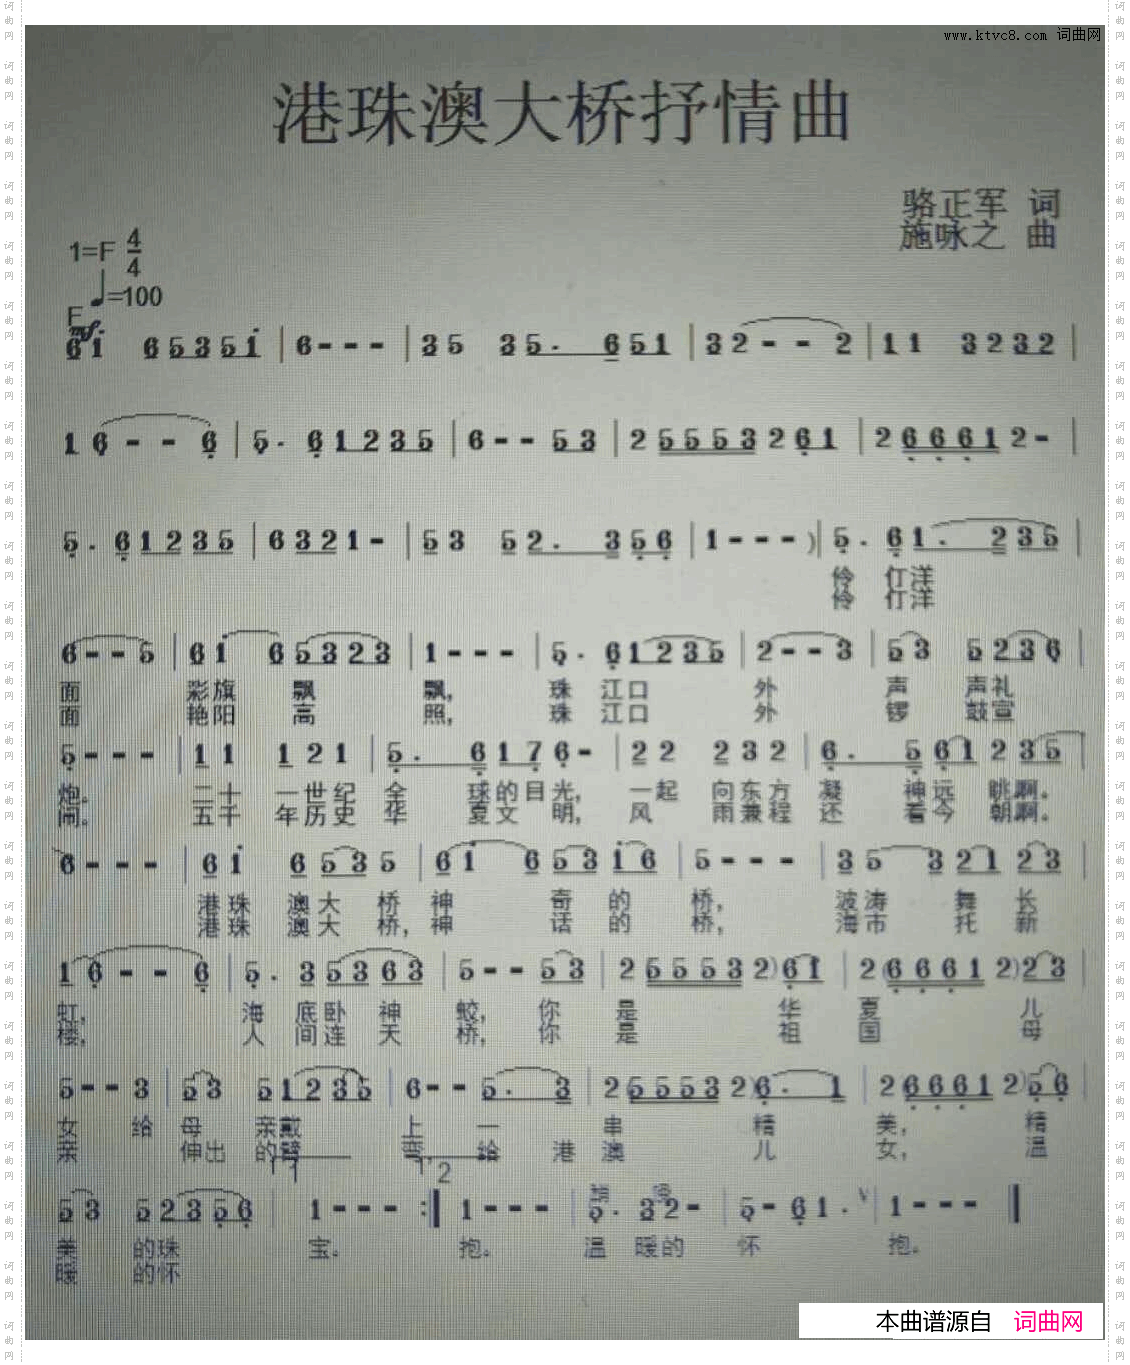 www.ktvc8.com 词曲网
港珠澳大桥抒情曲
骆正军 词
施咏之 曲
1=F 4/4
♩=100
F
mf
6 i 6 5 3 5 i | 6 - - - | 3 5 3 5 . 6 5 1 | 3 2 - - 2 | 1 1 3 2 3 2 |
1 6 - - 6 | 5 . 6 1 2 3 5 | 6 - - 5 3 | 2 5 5 5 3 2 6 1 | 2 6 6 6 1 2 - |
5 . 6 1 2 3 5 | 6 3 2 1 - | 5 3 5 2 . 3 5 6 | 1 - - - ) | 5 . 6 1 . 2 3 5 |
伶 仃 洋
伶 仃 洋
6 - - 5 | 6 i 6 5 3 2 3 | 1 - - - | 5 . 6 1 2 3 5 | 2 - - 3 | 5 3 5 2 3 6 |
面 彩 旗 飘 飘, 珠 江 口 外 声 声 礼
面 艳 阳 高 照, 珠 江 口 外 锣 鼓 宣
5 - - - | 1 1 1 2 1 | 5 . 6 1 7 6 - | 2 2 2 3 2 | 6 . 5 6 1 2 3 5 |
炮。 二 十 一 世 纪 全 球 的 目 光, 一 起 向 东 方 凝 神 远 眺 啊。
闹。 五 千 年 历 史 华 夏 文 明, 风 雨 兼 程 还 看 今 朝 啊。
6 - - - | 6 i 6 5 3 5 | 6 i 6 5 3 i 6 | 5 - - - | 3 5 3 2 1 2 3 |
港 珠 澳 大 桥 神 奇 的 桥, 波 涛 舞 长
港 珠 澳 大 桥, 神 话 的 桥, 海 市 托 新
1 6 - - 6 | 5 . 3 5 3 6 3 | 5 - - 5 3 | 2 5 5 5 3 2 ) 6 1 | 2 ( 6 6 6 1 2 ) 2 3 |
虹, 海 底 卧 神 鲛, 你 是 华 夏 儿
楼, 人 间 连 天 桥, 你 是 祖 国 母
5 - - 3 | 5 3 5 1 2 3 5 | 6 - - 5 . 3 | 2 5 5 5 3 2 ) 6 . 1 | 2 6 6 6 1 2 ) 5 6 |
女 给 母 亲 戴 上 一 串 精 美, 精
亲 伸 出 的 臂 弯, 给 港 澳 儿 女, 温
1 2
5 3 5 2 3 5 6 | 1 - - - :| 1 - - - | 5 . 3 2 - | 5 - 6 1 . V | 1 - - - ‖
美 的 珠 宝。 抱。 温 暖 的 怀 抱。
暖 的 怀
本曲谱源自 词曲网